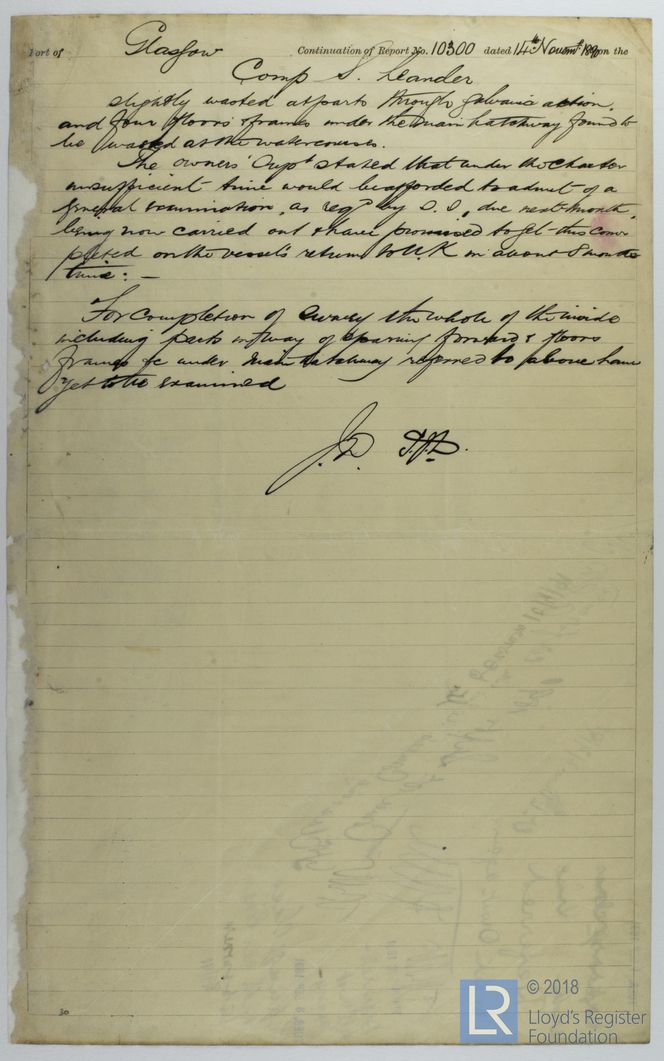 Port of Glasgow Continuation of Report No. 10300 dated 14th Novemr 1890 on the
Comp S. Leander
slightly wasted at parts through galvanic action,
and four floors & frames under the main hatchway found to
be wasted at the watercourses.
The owners' Supt stated that under the Charter
insufficient time would be afforded to admit of a
general examination, as reqd by S. S, due next month,
being now carried out & have promised to get this com
pleted on the vessel's return to UK in about 8 months
time: —
For completion of survey the whole of the inside
including parts in way of sparring forward & floors
frames &c under main hatchway referred to above have
yet to be examined
J.D.
30
LR
© 2018
Lloyd's Register
Foundation